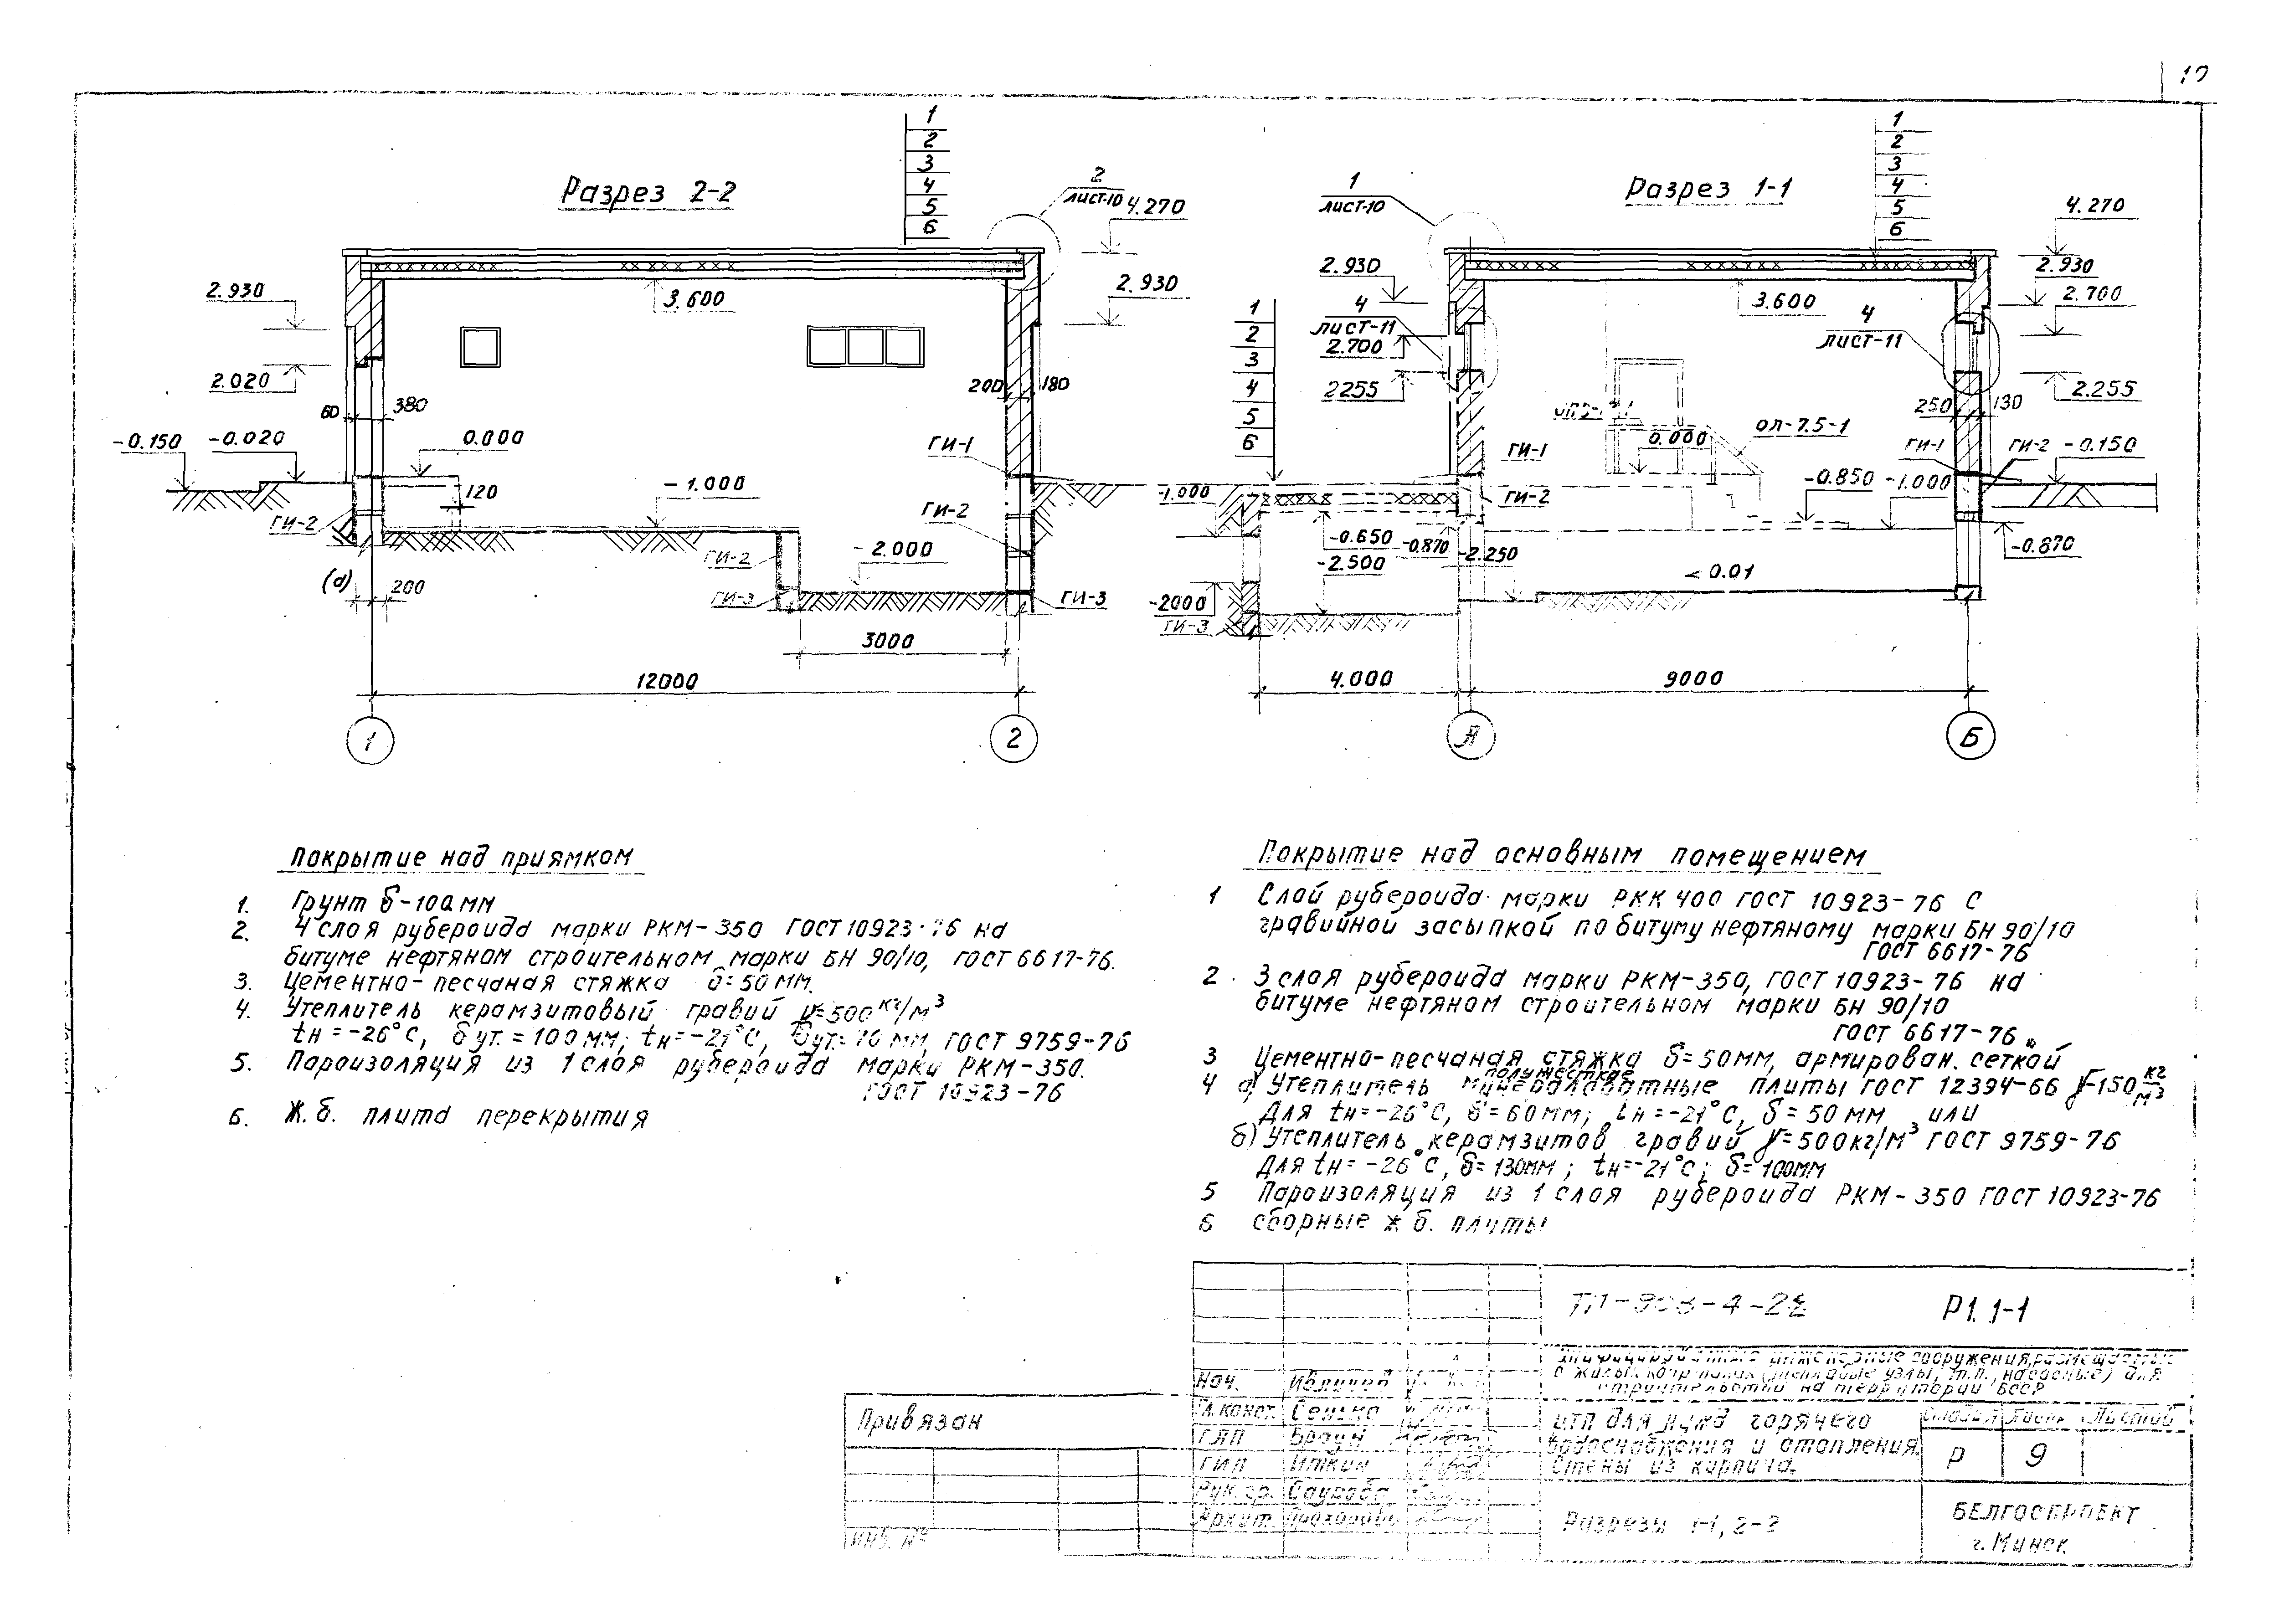 10
Разрез 2-2
1
2
3
4
5
6
2
лист-10
4.270
2.930
2.930
3.600
2.020
60
380
200
180
-0.150
-0.020
0.000
ГИ-1
-1.000
120
ГИ-2
ГИ-2
ГИ-2
-2.000
(а)
200
ГИ-3
ГИ-3
3000
12000
1
2
Разрез 1-1
1
лист-10
1
2
3
4
5
6
4.270
2.930
2.930
2.700
3.600
1
2
3
4
5
6
4
лист-11
2.700
2255
4
лист-11
2.255
250
130
ОЛ-7.5-1
0.000
ГИ-1
ГИ-1
ГИ-2
-0.150
-1.000
ГИ-2
-0.850
-1.000
-0.650
-0.870
-2.250
-2.500
< 0.01
-0.870
-2000
ГИ-3
4.000
9000
А
Б
Покрытие над приямком
1. Грунт δ-100мм
2. 4 слоя рубероида марки РКМ-350 ГОСТ 10923-76 на
битуме нефтяном строительном марки БН 90/10, ГОСТ 6617-76.
3. Цементно-песчаная стяжка δ=50мм.
4. Утеплитель керамзитовый гравий γ=500кг/м³
tн=-26°С, δут.=100мм; tн=-21°С, δут.=70мм, ГОСТ 9759-76
5. Пароизоляция из 1 слоя рубероида марки РКМ-350.
ГОСТ 10923-76
6. Ж.б. плита перекрытия
Покрытие над основным помещением
1 Слой рубероида марки РКК 400 ГОСТ 10923-76 С
гравийной засыпкой по битуму нефтяному марки БН 90/10
ГОСТ 6617-76
2. 3 слоя рубероида марки РКМ-350, ГОСТ 10923-76 на
битуме нефтяном строительном марки БН 90/10
ГОСТ 6617-76
3 Цементно-песчаная стяжка δ=50мм, армирован. сеткой
полужесткие
4 а) Утеплитель минераловатные плиты ГОСТ 12394-66 γ-150 кг/м³
Для tн=-26°С, δ=60мм; tн=-21°С, δ=50мм или
б) Утеплитель керамзитов гравий γ=500кг/м³ ГОСТ 9759-76
Для tн=-26°С, δ=130мм; tн=-21°С; δ=100мм
5 Пароизоляция из 1 слоя рубероида РКМ-350 ГОСТ 10923-76
6 сборные ж б. плиты
Р1.1-1
инженерные сооружения, размещаемые
узлы, т.п., насосные) для
строительства на территории БССР
Привязан
инв. №
Нач.
Гл. конст. Сенько
ГАП Браун
ГИП Иткин
Рук. гр.
Архит.
ИТП для нужд горячего
водоснабжения и отопления.
Стены из кирпича.
Стадия Лист Листов
Р 9
Разрезы 1-1, 2-2
БЕЛГОСПРОЕКТ
г. Минск